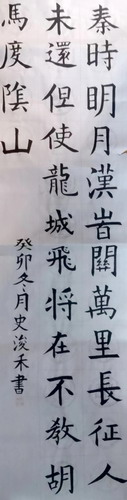 秦時明月漢時關萬里長征人
未還但使龍城飛将在不教胡
馬度陰山
癸卯冬月史浚禾書